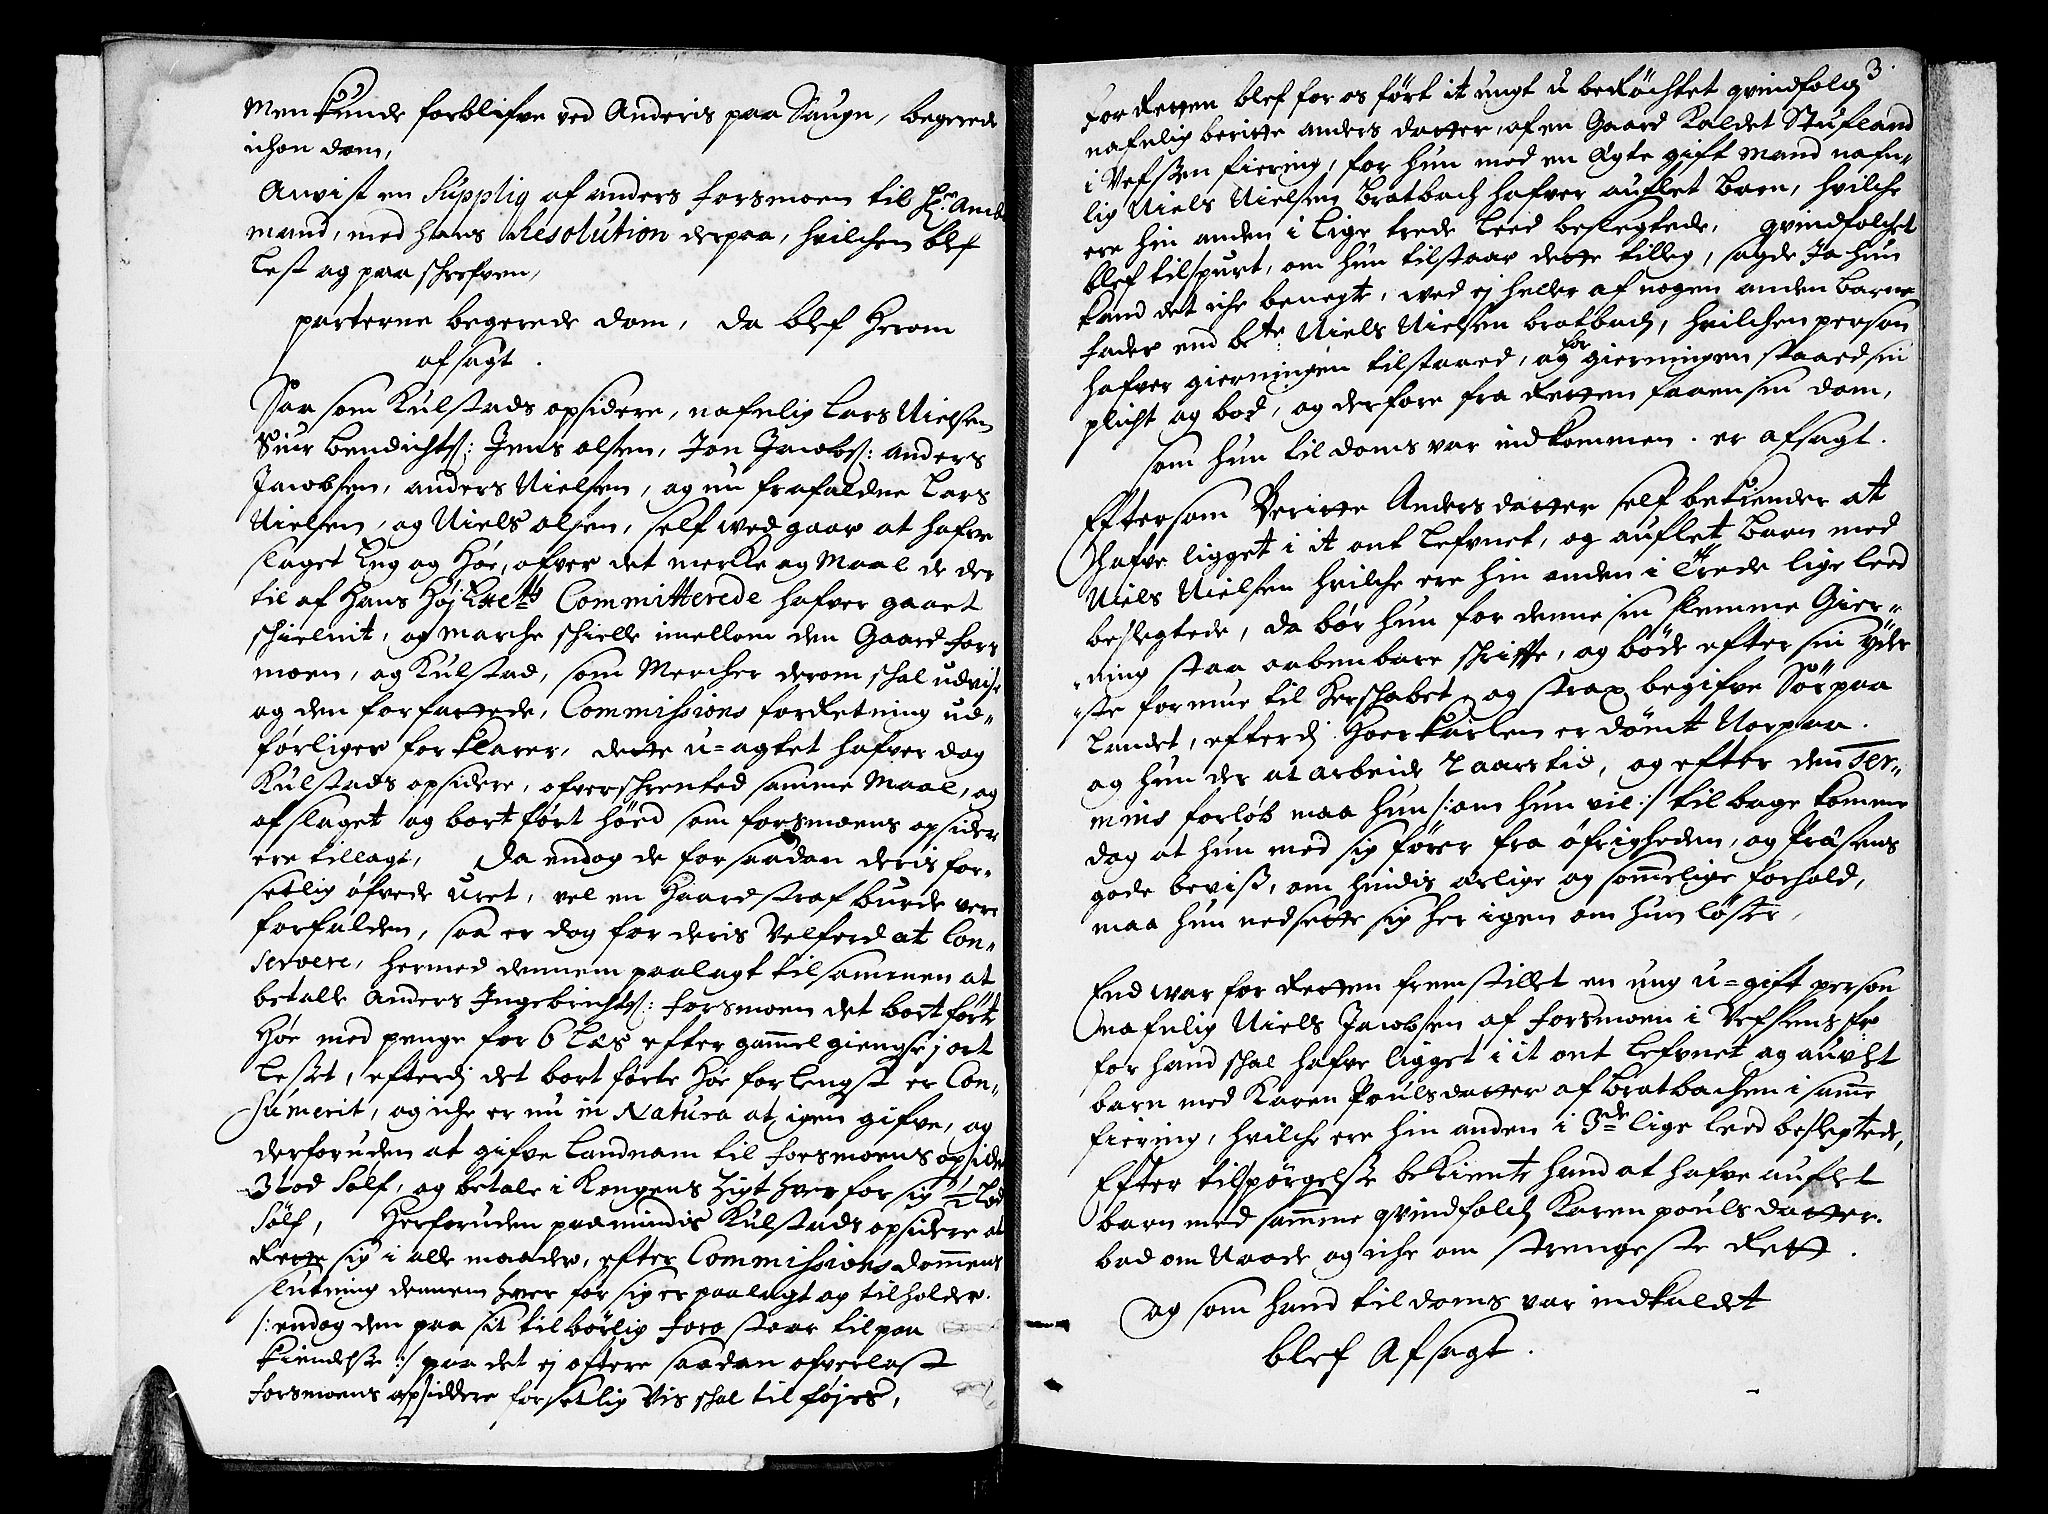 Men kunde forblifve ved Anderis paa Saugn, begerede
ichon dom,
Anvist en Suppliq af anders Forsmoen til Hr. Amb
mand, med hans Resolution derpaa, hvilchen blef
lest og paaschrefven,
parterne begerede dom, da blef herom
afsagt.
Saa som Kulstads opsidere, nafnlig Lars Nielsen
Siur bendichts: Jens olsen, Jon Jacobs: anders
Jacobsen, anders Nielsen, og nu frafaldne Lars
Nielsen, og Niels olsen, self wedgaar at hafve
slaget Eng og Høe, ofver det merke og Maal de der
til af Hans Høj Committerede hafver gaaet
schielnit, og marche schielle imellom den Gaard Fors
moen, og Kulstad, som Mercher derom schal udvise
og den forfattede, Commissions forRetning ud"
førliger forklarer, dette u=agtet hafver dog
Kulstads opsidere, ofverschrented samme Maal, og
afslaget og bort ført høed som forsmoens opsider
ere tillagt, Da endog de for saadan deris for"
setlig øfvede Uret, vel en Haard straf burde vere
forfalden, saa er dog for deris Velferd at Con"
servere, hermed dennem paalagt tilsammen at
betalle Anders Ingebrichts: Forsmoen det bortførte
Høe med penge for 6 Læs efter gammel giengse j ort
lesset, efterdj det bort førte Høe forlengst er Con"
sumerit, og iche er nu in Natura at igen gifve, og
derforuden at gifve Landnam til Forsmoens opsider
3 lod Sølf, og betale i Kongens Sigt hver for sig ½ lod
Sølf, Herforuden paamindis Kulstads opsidere at
Rette sig i alle maader, efter Commissions dommens
slutning dennem hver for sig er paalagt og tilholder.
/: endog den paa sit tilbørlig Foro staar til paa
kiendelse :/ paa det ej oftere saadan ofverlast
Forsmoens opsiddere forsetlig Vis schal tilføjes,
3.
For Retten blef for os ført it ungt u berøchtet qvindfolch
nafnlig beritte anders datter, af en Gaard Kaldet Stufland
i Vefssen fiering, for hun med en Egte gift mand nafn"
lig Niels Nielsen Bratbach hafver auflet barn, hvilche
ere hin anden i lige trede leed beslegtede, qvindfolchet
blef tilspurt, om hun tilstaar dette tilleg, sagde Ja hun
kand det iche benegte, wed ej heller af nogen anden barne
fader end bte: Niels Nielsen bratbach, hvilchen person
hafver gierningen tilstaaed, og for gierningen staaed sin
plicht og bod, og derfore fra Retten faaen sin dom,
som hun til doms var indkommen. er afsagt.
Eftersom Beritte Anders datter self bekiender at
hafve ligget i it ont lefvnet, og auflet barn med
Niels Nielsen hvilche ere hin anden i Trede lige leed
beslegtede, da bør hun for denne sin slemme Gier"
ning staa aabenbare schrifte, og bøde efter sin yder
"ste formue til Herschabet, og strax begifve Sør paa
Landet, efterdj Hoerkarlen er dømt Norpaa.
og hun der at arbeide 2 aars tid, og efter den Ter"
mins forløb maa hun /: om hun vil :/ tilbage komme
dog at hun med sig fører fra øfrigheden, og Præsens
gode beviss, om hindis ærlige og sommelige forhold,
maa hun nedsette sig her igen om hun løster,
End war for Retten fremstillet en ung u=gift person
nafnlig Niels Jacobsen af Forsmoen i Vefsens fr:
for hand schal hafve ligget i it ont lefvnet og auvlt
barn med Karen Pouls datter af bratbachen i samme
fiering, hvilche ere hin anden i 3de lige leed beslegtede,
Efter tilspørgelse bekiente hand at hafve auflet
barn med samme qvindfolch Karen pouls datter.
bad om Naade og iche om strengeste Rett.
og som hand til doms var indkaldet
blef Afsagt.